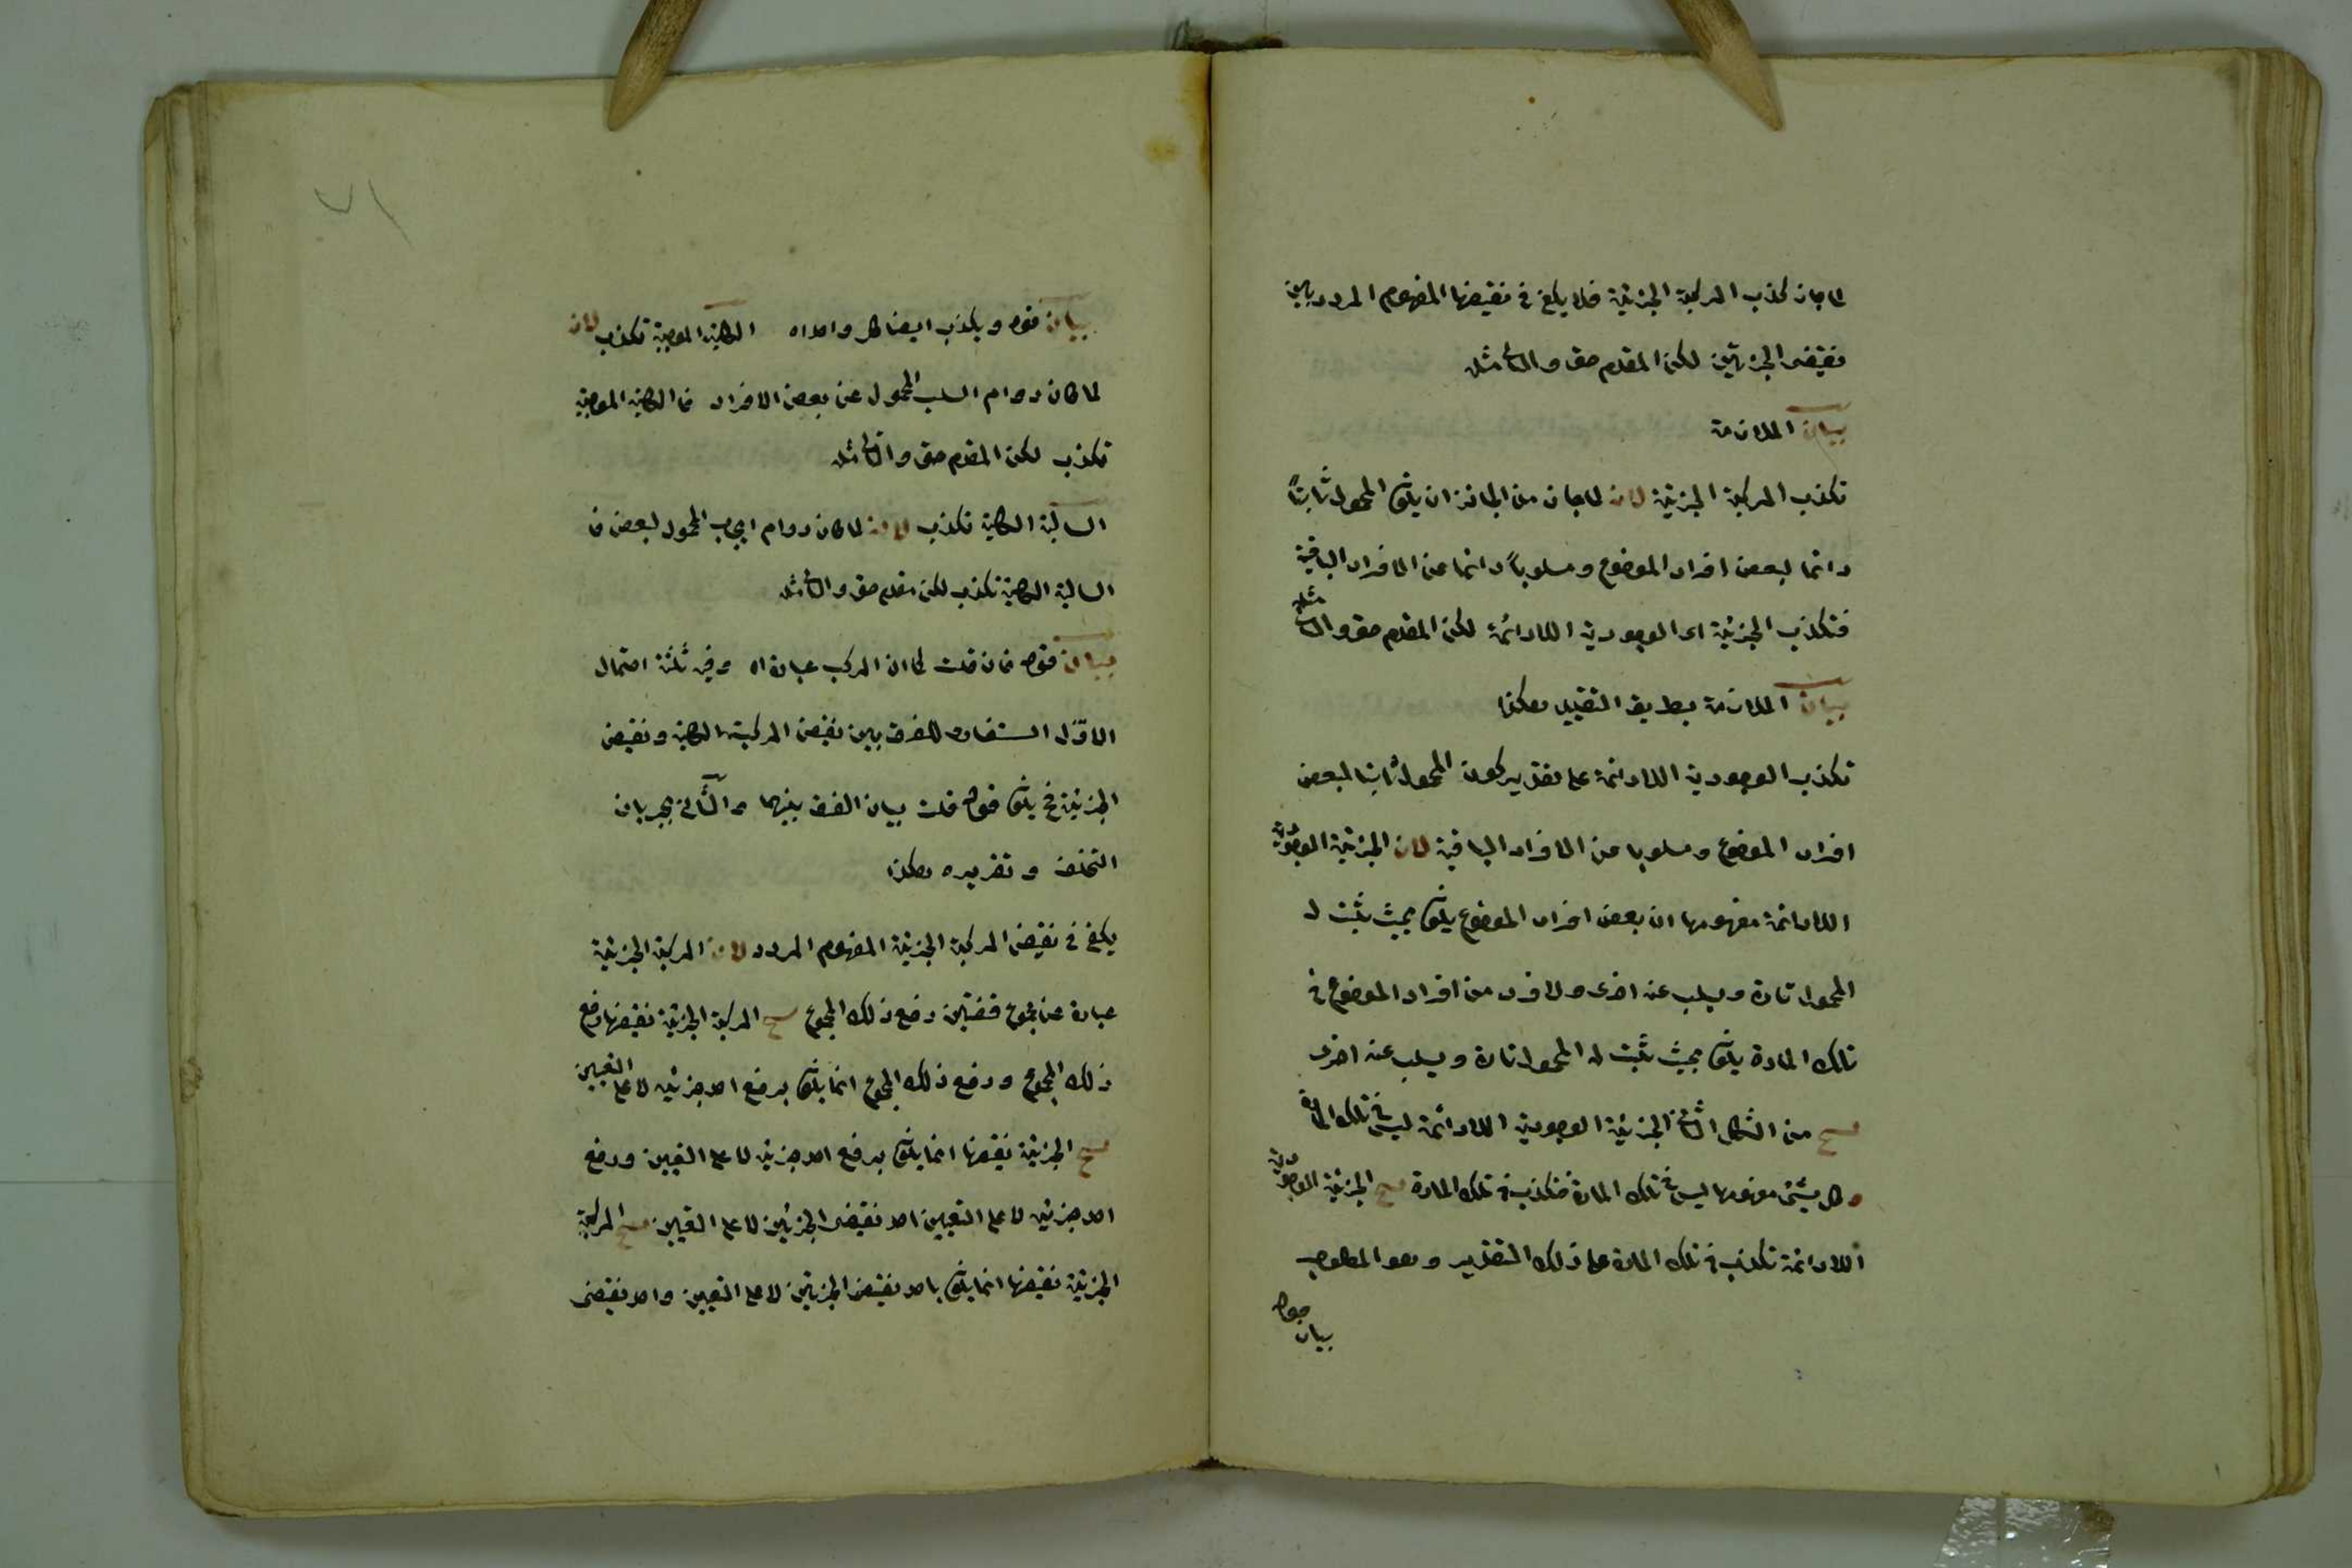 لما جاز كذب المركبة الجزئية فلا يكفى فى نقيضها المفهوم المردد بين
نقيضى الجزئين لكن المقدم حق والتالى مثله
بيان الملازمة
تكذب المركبة الجزئية لان لما جاز من الجائز ان يكون المحمول ثابتاً
دائما لبعض افراد الموضوع ومسلوباً دائما عن الافراد الباقية
فتكذب الجزئية اى الوجودية اللادائمة لكن المقدم حق والتالى مثله
بيان الملازمة بطريق التقييد هكذا
تكذب الوجودية اللادائمة على تقدير كون المحمول ثابتا لبعض
افراد الموضوع ومسلوبا عن الافراد الباقية لان الجزئية الوجودية
اللادائمة مفهومها ان بعض افراد الموضوع يكون بحيث يثبت له
المحمول تارة ويسلب عنه اخرى ولا فرد من افراد الموضوع فى
تلك المادة يكون بحيث يثبت له المحمول تارة ويسلب عنه اخرى
ينتج من الشكل الثانى الجزئية الوجودية اللادائمة ليس فى تلك المادة
وكل شئ مفهومها ليس فى تلك المادة فتكذب فى تلك المادة ينتج الجزئية الوجودية
اللادائمة تكذب فى تلك المادة على ذلك التقدير وهو المطلوب
بيان قوله
٧١
بيان قوله ويكذب ايضا كل واحد اه الكلية الموجبة تكذب لان
لما كان دوام السلب المحمول عن بعض الافراد فى الكلية الموجبة
تكذب لكن المقدم حق والتالى مثله
السالبة الكلية تكذب لان لما كان دوام ايجاب المحمول لبعض فى
السالبة الكلية تكذب لكن مقدم حق والتالى مثله
بيان قوله فان قلت كما ان المركب عبارة اه وفيه ثلثة احتمال
الاوّل استفسار للفرق بين نقيض المركبة الكلية ونقيض
الجزئية فح يكون قوله قلت بيان الفرق بينهما والثانى بجريان
التخلف وتقريره هكذا
يكفى فى نقيض المركبة الجزئية المفهوم المردد لان المركبة الجزئية
عبارة عن مجموع قضيتين رفع ذلك المجموع ينتج المركبة الجزئية نقيضها رفع
ذلك المجموع ورفع ذلك المجموع انما يكون برفع احد جزئيه لا على التعيين
ينتج الجزئية نقيضها انما يكون برفع احد جزئيه لا على التعيين ورفع
احد جزئيه لا على التعيين احد نقيضى الجزئين لا على التعيين ينتج المركبة
الجزئية نقيضها انما يكون باحد نقيضى الجزئين لا على التعيين واحد نقيضى